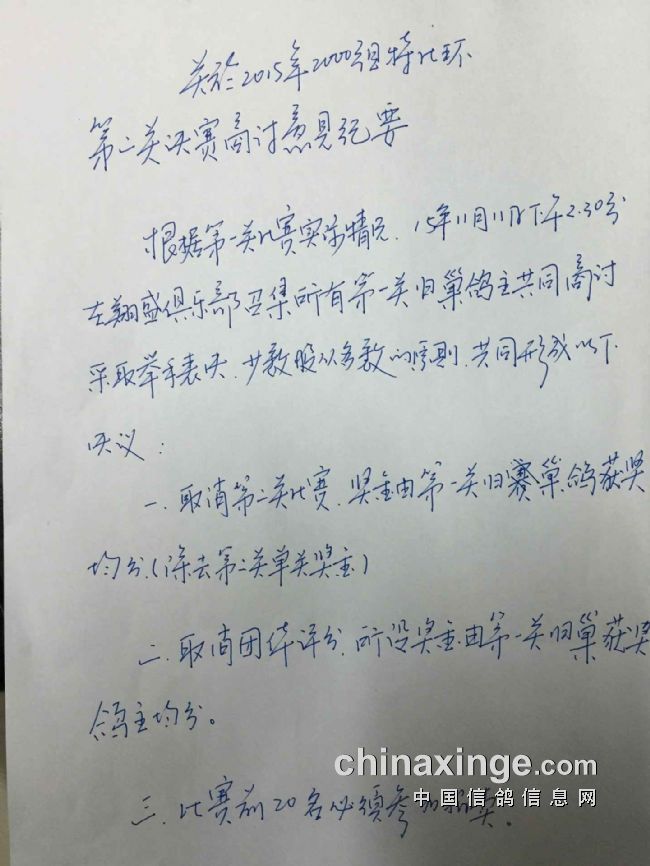 关於2015年2000组特比环
第二关决赛商讨意见纪要
根据第一关比赛实际情况，15年11月11日下午2.30分
在翔盛俱乐部召集所有第一关归巢鸽主共同商讨
采取举手表决，少数服从多数的原则，共同形成以下
决议：
一、取消第二关比赛，奖金由第一关归赛巢鸽获奖
均分(除去第二关单关奖金)
二、取消团体评分，所设奖金由第一关归巢获奖
鸽主均分。
三、比赛前20名必须参加拍卖。
chinaxinge.com
中国信鸽信息网